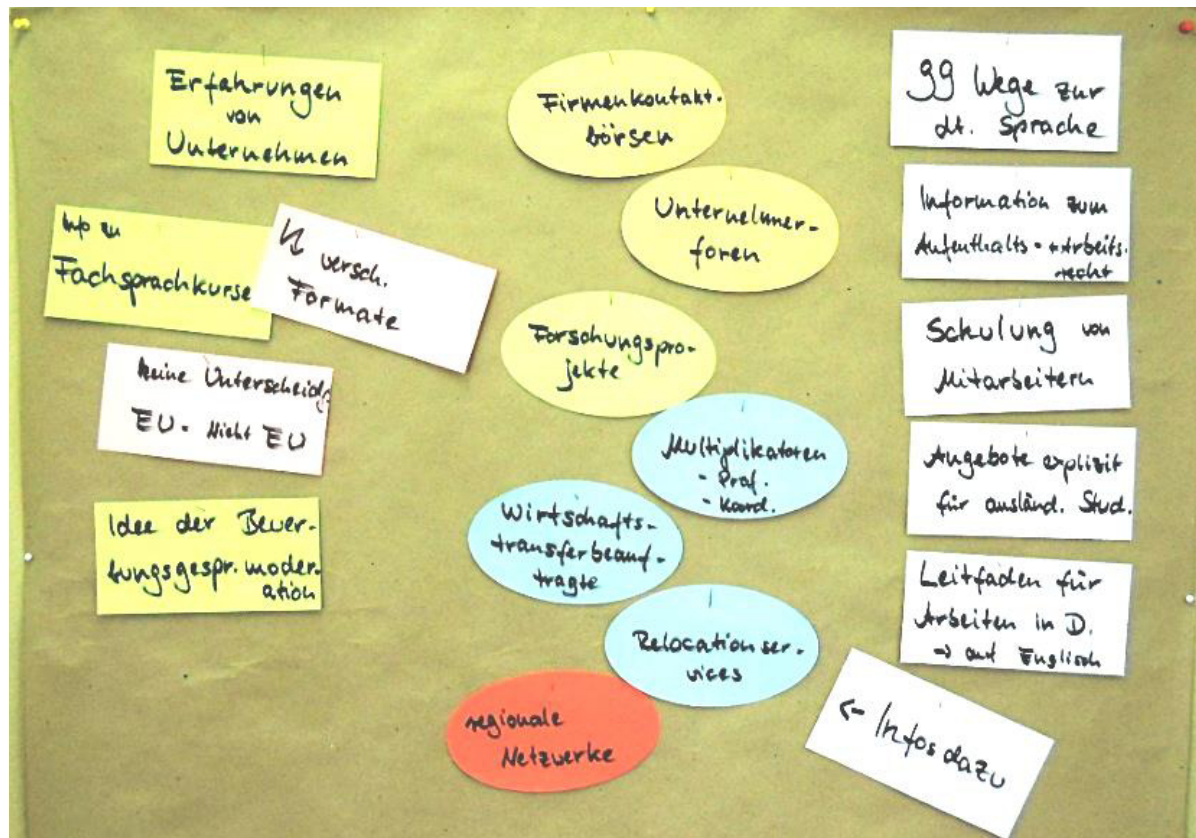 Erfahrungen
von
Unternehmen
Info zu
Fachsprachkurse
versch.
Formate
keine Unterscheidg.
EU - Nicht EU
Idee der Bewer-
bungsgespr. moder-
ation
Firmenkontakt-
börsen
Unternehmer-
foren
Forschungspro-
jekte
Multiplikatoren
- Prof.
- Koord.
Wirtschafts-
transferbeauf-
tragte
Relocationser-
vices
regionale
Netzwerke
99 Wege zur
dt. Sprache
Information zum
Aufenthalts- + Arbeits-
recht
Schulung von
Mitarbeitern
Angebote explizit
für ausländ. Stud.
Leitfaden für
Arbeiten in D.
→ auf Englisch
← Infos dazu